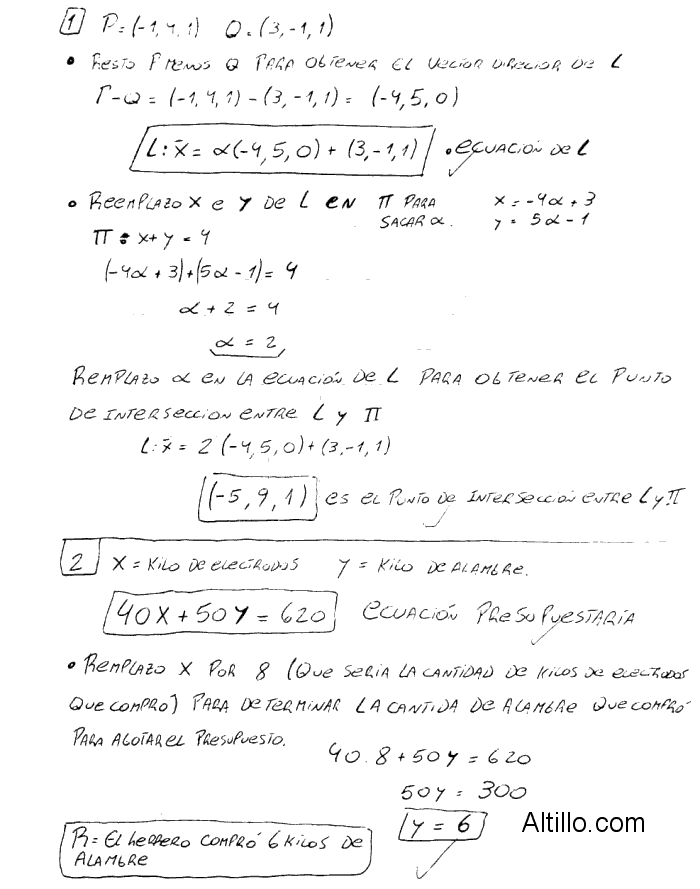 1 P=(-1,4,1) Q=(3,-1,1)
• Resto P menos Q PARA OBTENER EL VECTOR DIRECTOR DE L
P-Q = (-1,4,1)-(3,-1,1)= (-4,5,0)
L: x̄ = α(-4,5,0) + (3,-1,1) • ECUACIÓN DE L
• REEMPLAZO X e Y DE L EN π PARA SACAR α. x = -4α + 3
y = 5α - 1
π: x+y = 4
(-4α + 3)+(5α - 1)= 4
α + 2 = 4
α = 2
REMPLAZO α EN LA ECUACIÓN DE L PARA OBTENER EL PUNTO
DE INTERSECCION ENTRE L y π
L: x̄ = 2 (-4,5,0)+(3,-1,1)
(-5,9,1) es EL PUNTO DE INTERSECCION ENTRE L y π
2 X = KILO DE ELECTRODOS Y = KILO DE ALAMBRE.
40X + 50Y = 620 ECUACIÓN PRESUPUESTARÍA
• REMPLAZO X POR 8 (QUE SERIA LA CANTIDAD DE KILOS DE ELECTRODOS
QUE COMPRO) PARA DETERMINAR LA CANTIDA DE ALAMBRE QUE COMPRÓ
PARA AGOTAR EL PRESUPUESTO.
40.8 + 50Y = 620
50Y = 300
Y = 6
Altillo.com
R= EL HERRERO COMPRÓ 6 KILOS DE
ALAMBRE